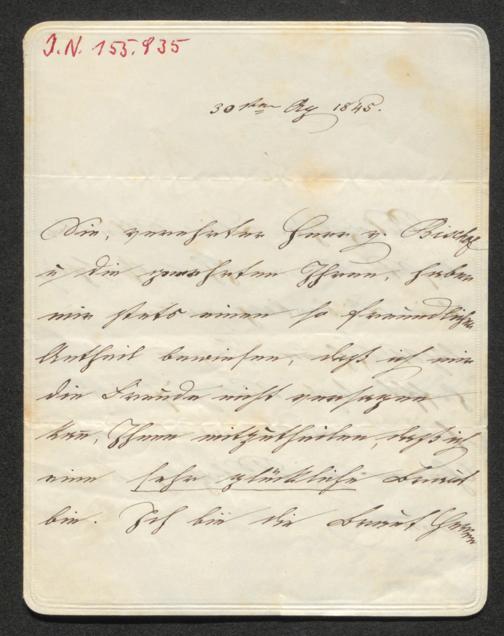 I.N. 155.835
30ten Ag 1845.
Sie, verehrter Herr v. Bischof
u die geehrten Ihren, haben
mir stets einen so freundlichen
Antheil bewiesen, daß ich mir
die Freude nicht versagen
kan, Ihnen mitzutheilen, daß ich
eine sehr glückliche Braut
bin. Ich bin die Braut Herrn